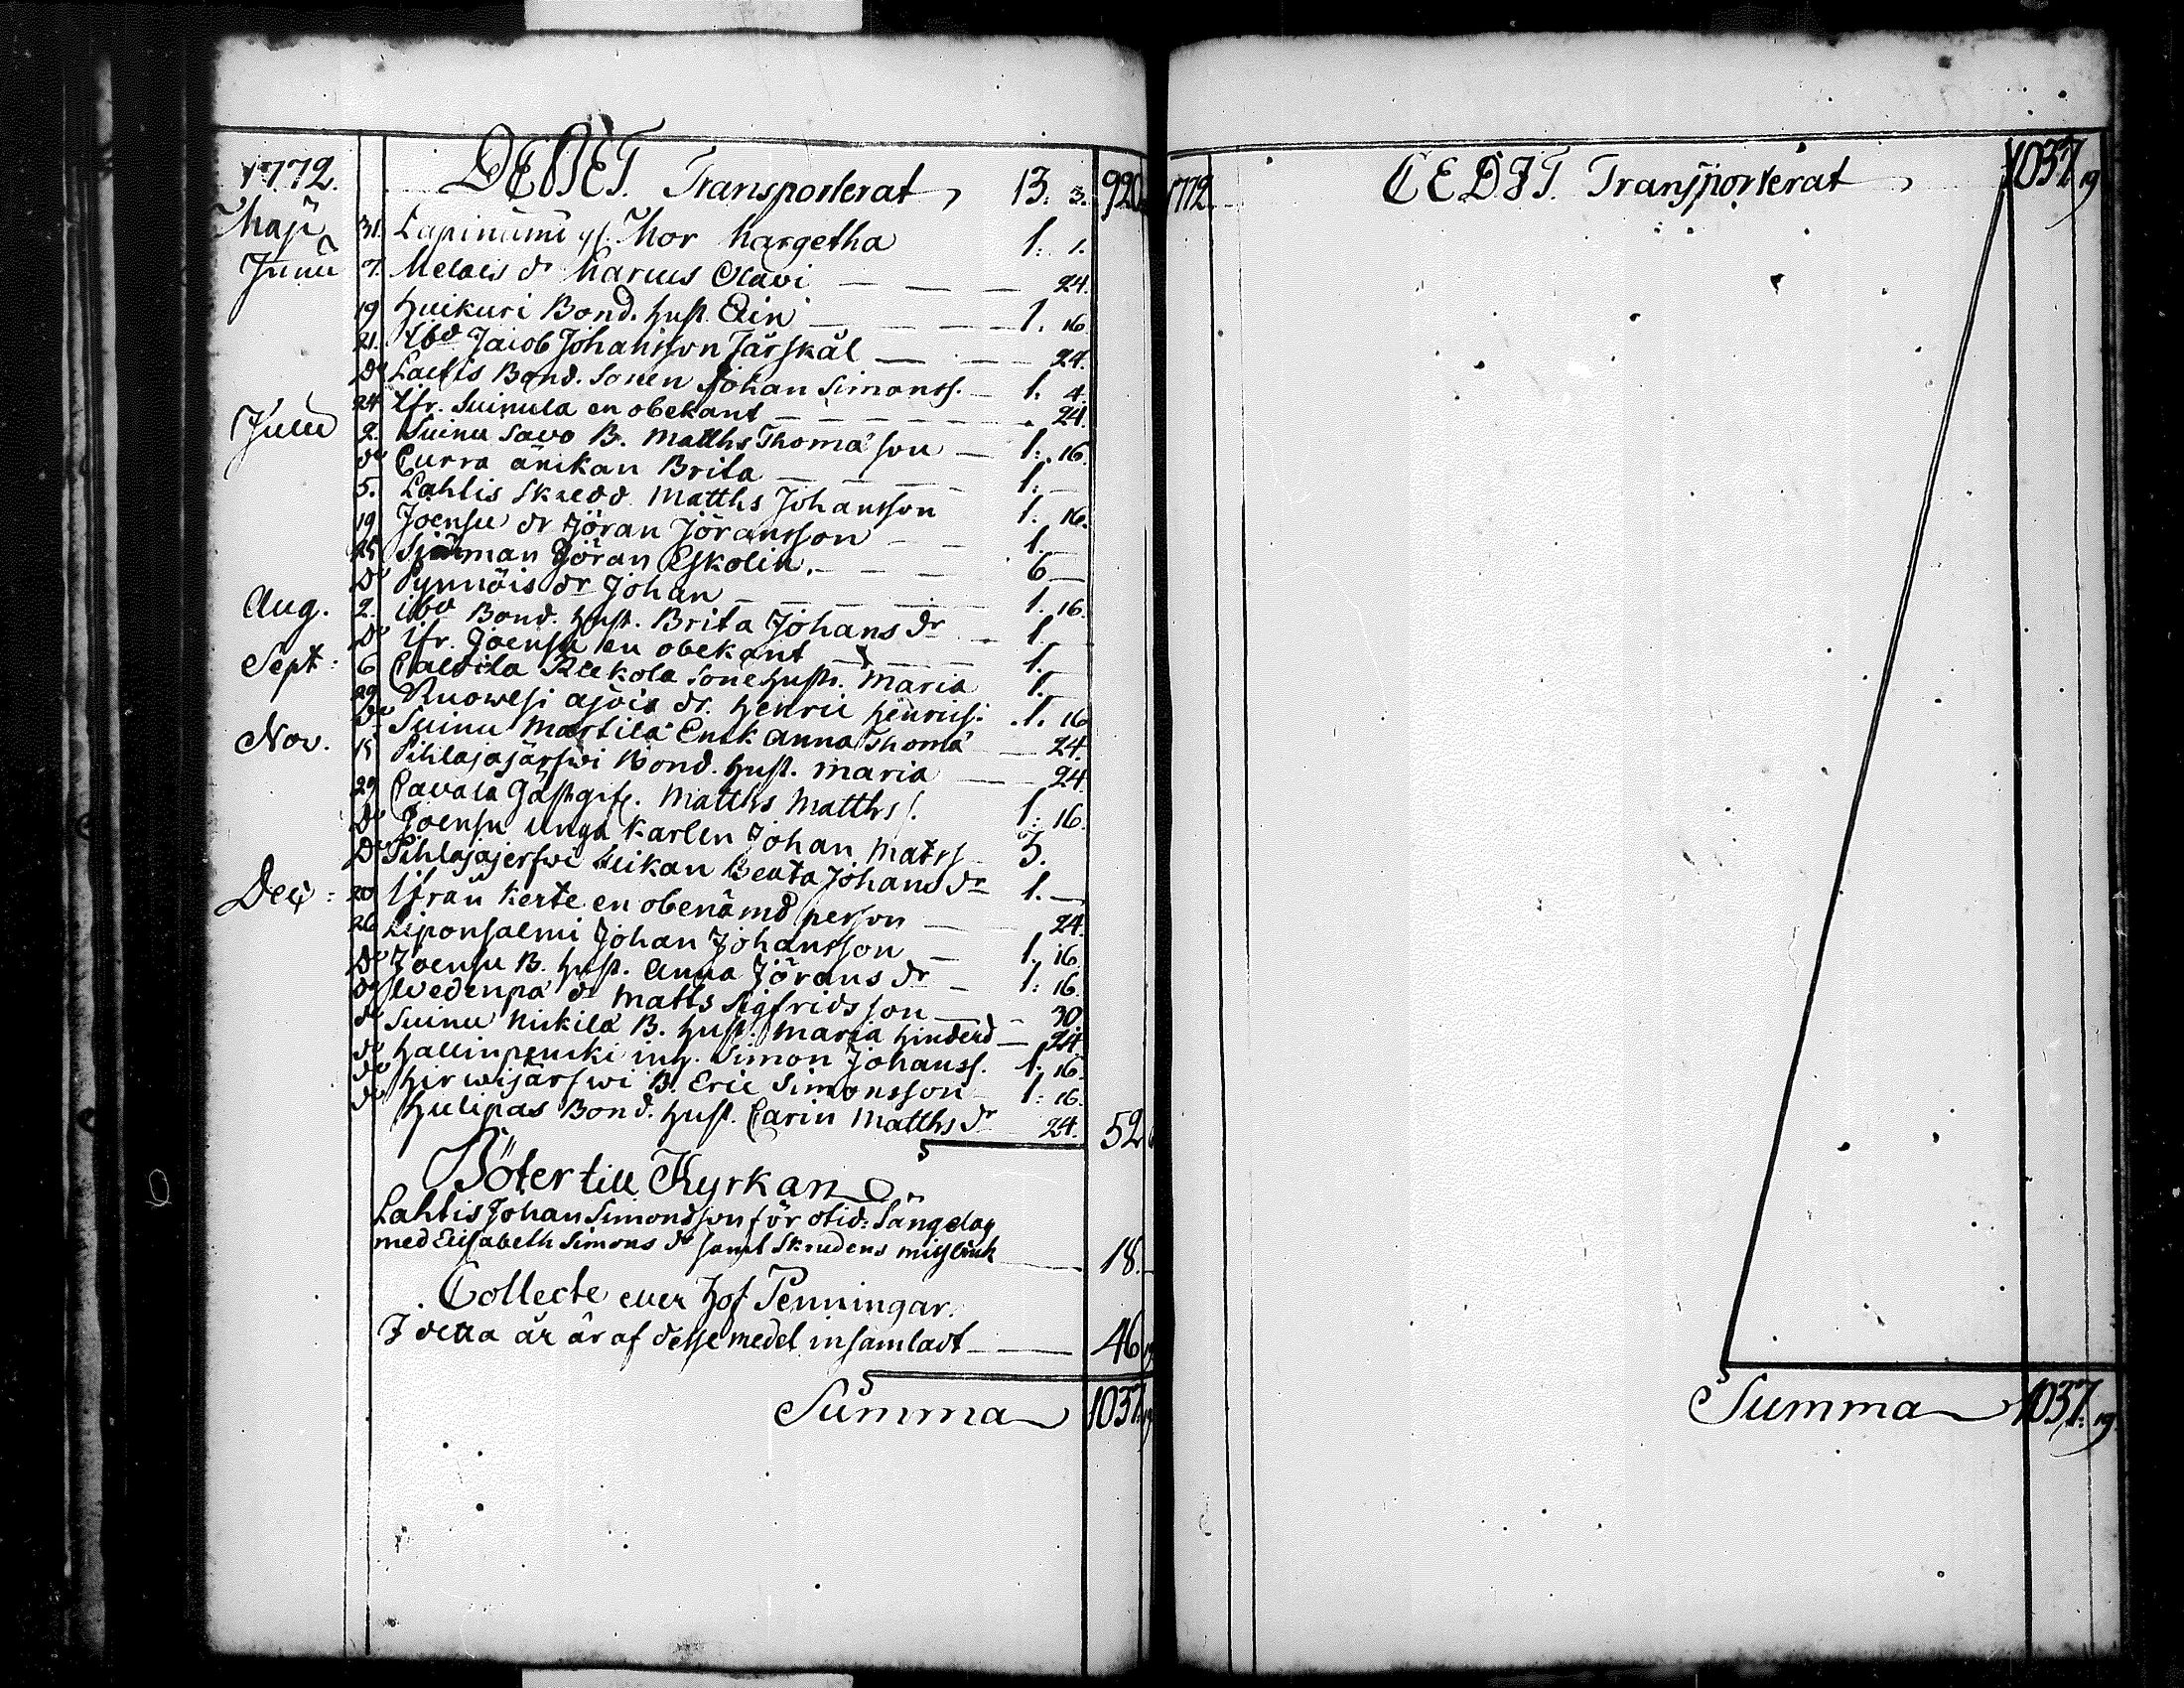 1772. DEBET. Transporterat, 13. 3. 920
Maji 31. Lapinnimi gl. Mor Margetha 1. 1.
Junii 7. Melais dr Marcus Olavi 24.
19 Huikuri Bond. hust. Elin 1. 16
21. Ibd Jacob Johansson Järskäl 24.
do Lachtis Bond. sonen Johan Simonss. 1. 4
24 Ifr. Suinula en obekant 24.
Julii 2. Suinu Savo B. Matths Thomasson 1. 16.
do Curra änkan Brita 1.
5. Lahtis Skredd. Matths Johansson 1. 16.
19 Joensu dr Jöran Jöransson 1.
25 Sjöman Jöran Eskolin. 6
do Pynnöis dr Johan 1. 16.
Aug. 2. ibd Bond. hust. Brita Johans dr 1.
do ifr. Joensu en obekant 1.
Sept: 6 Reekola Sonehustr. Maria 1.
29 Ruowesi dr. Henric Henrics: 1. 16
do Suinu Martila Enk Anna Thoma 24
Nov. 15 Pihlajajärfwi Bond. hust. Maria 24.
29 Cavala Gästgif. Matths Matths s. 1: 16.
do Joensu unga Karlen Johan Mats s 3.
do Pihlajajerfwi Beata Johans dr 1.
Dec: 20 Ifrån Kerte en obenämd person 24.
26 Liponsalmi Johan Johansson 1. 16
do Joensu B. hust. Anna Jörans dr 1: 16.
do Wedenpä dr Matts Sigfridsson 30.
do Suinu Nikkilä B. hust. Maria Hinderd 24.
do Hallinpenki inh. Simon Johanss. 1. 16.
do Hirwijärfwi B. Eric Simonsson 1: 16.
do Hulipas Bond. hust. Carin Matths dr 24. 52
Böter till Kyrkan
Lahtis Johan Simonsson för otid: Sängelag
med Elisabeth Simons dr samt Skrudens missbruk 18.
Collecte eller Hof Penningar.
I detta år är af desse medel insamladt 46
Summa 1037
1772. CEDIT. Transporterat 1037 19
Summa 1037. 19.